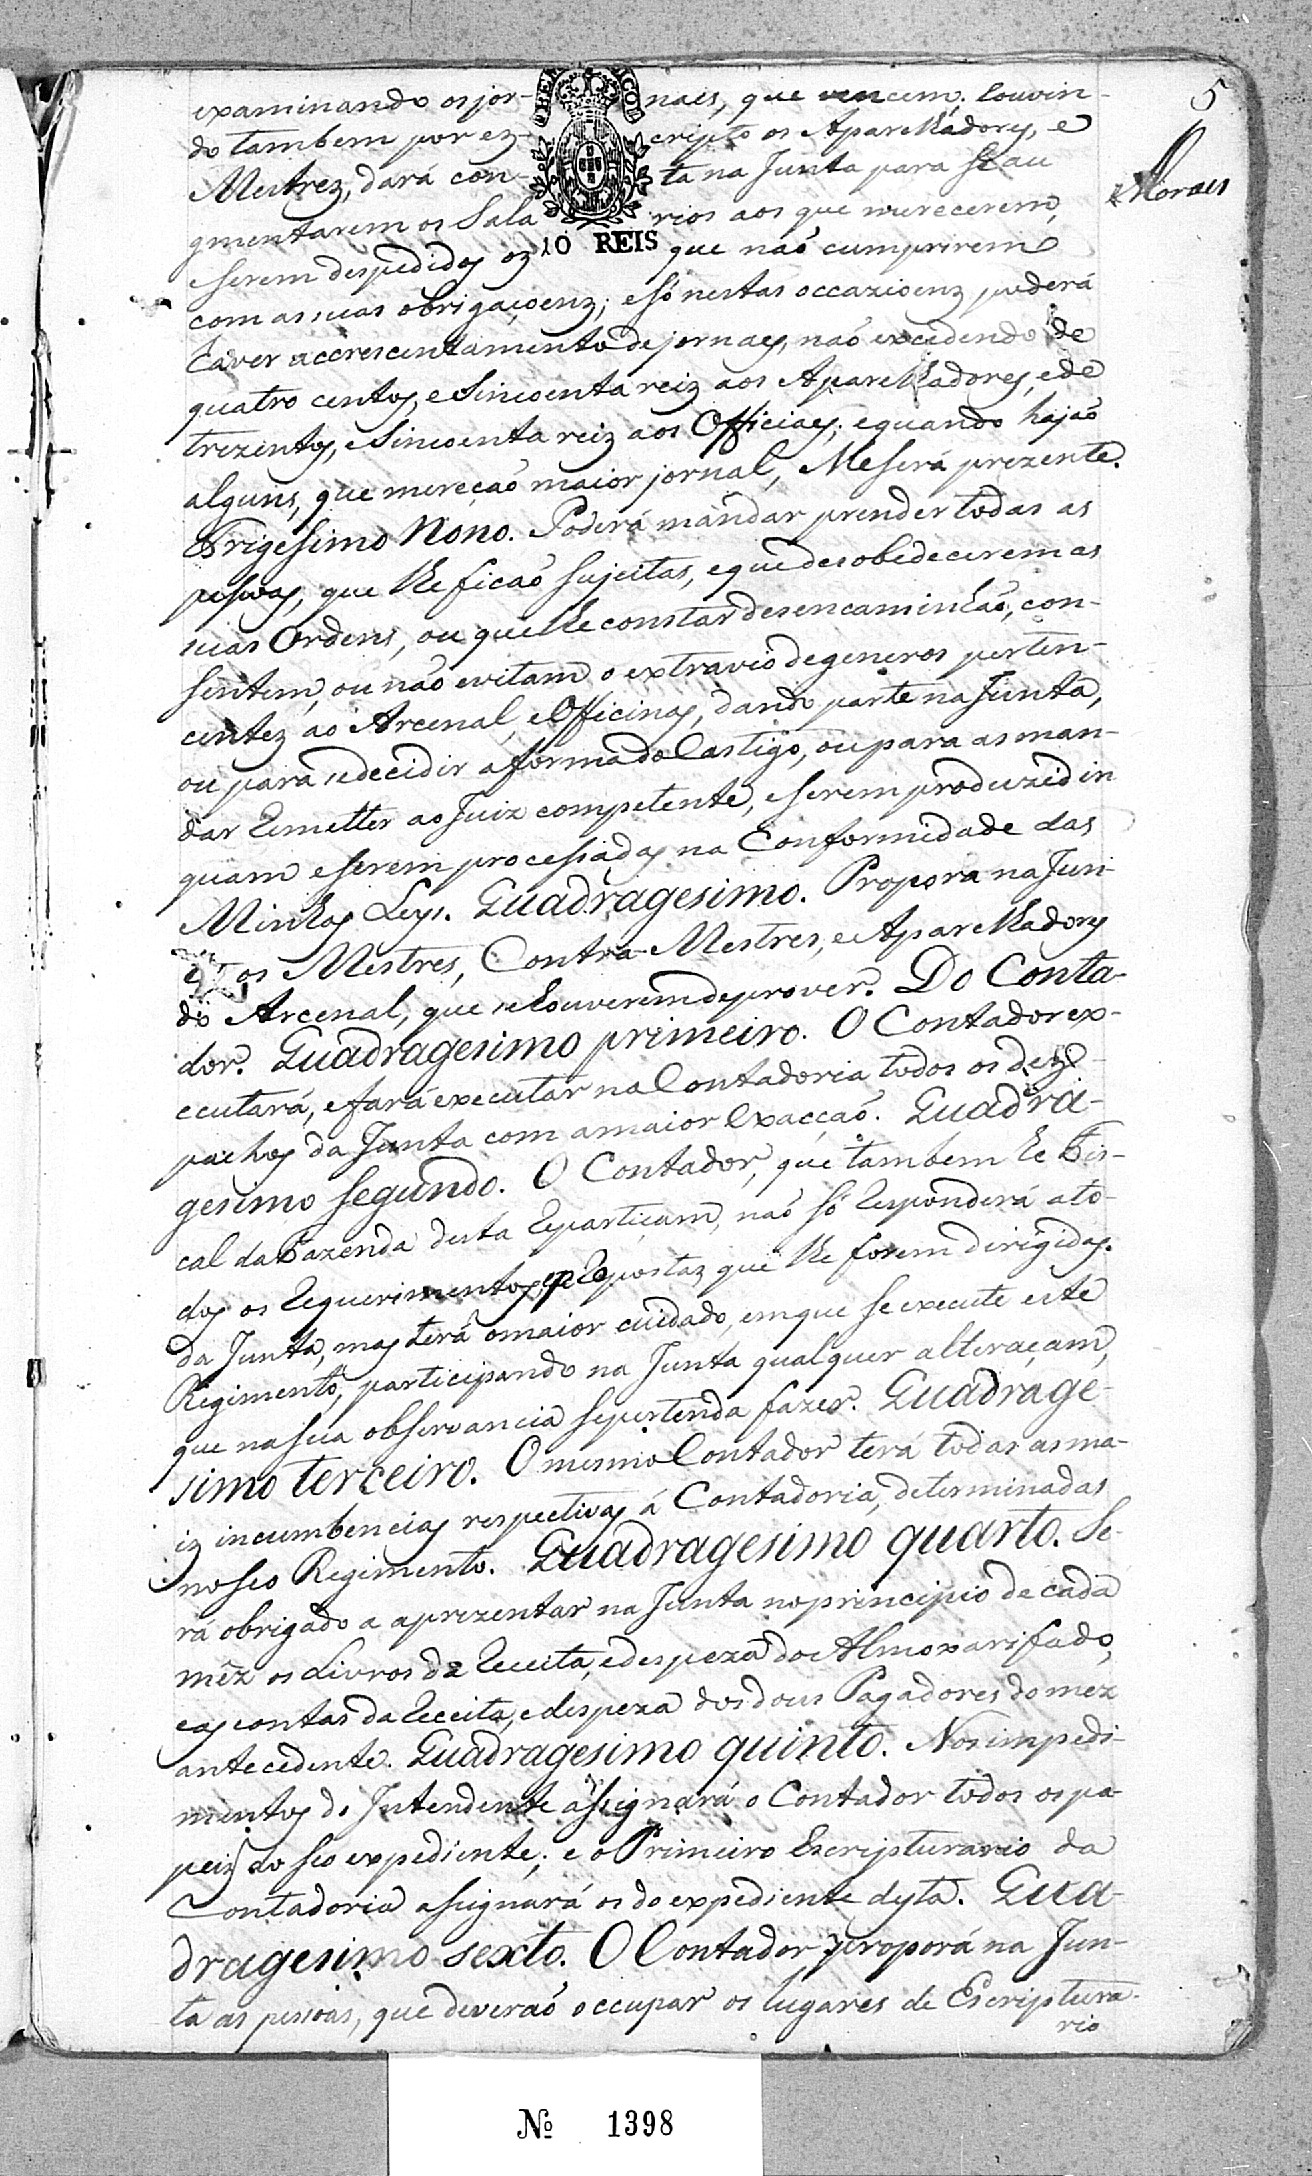 5
Moraes
10 REIS
examinando os jor- naes, que vencem; Couvin-
do tambem por ez- cripto os Aparelhadores, e
Mestrez, dará con- ta na Junta para se au
gmentarem os Sala rios aos que merecerem,
e serem despedidos oz que naõ cumprirem
com as suas obrigaçoenz; e só nestas occazioenz poderá
haver accrescentamento de jornaes, naõ excedendo de
quatro centos, e Sincoenta reiz aos Aparelhadores, e de
trezentos, e Sincoenta reiz aos Officiaes; e quando hajaõ
alguns, que mereçaõ maior jornal, Me será prezente.
Trigesimo Nono. Poderá mandar prender todas as
pessoas, que lhe ficaõ sujeitas, e que desobedecerem as
suas Ordens, ou que lhe constar desencaminhaõ, con-
sentem, ou naõ evitam o extravio de generos perten-
centez ao Arcenal, e Officinas, dando parte na Junta,
ou para se decidir a forma do Castigo, ou para as man-
dar Remetter ao Juiz competente, e serem produzid in
quam e serem processadas na Conformidade das
Minhas Leys. Quadragesimo. Propora na Jun-
ta os Mestres, Contra-Mestres, e Aparelhadores
do Arcenal, que se houverem de prover. Do Conta-
dor. Quadragesimo primeiro. O Contador ex-
ecutará, e fará executar na Contadoria todos os dez-
pachos da Junta com a maior Exacçaõ. Quadra-
gesimo segundo. O Contador, que tambem he Fis-
cal da Fazenda desta Repartiçam, naõ só Responderá a to-
dos os Requerimentos, e Repostaz que lhe forem dirigidas
da Junta, mas terá o maior cuidado, em que se execute este
Regimento, participando na Junta qualquer alteraçam,
que na sua observancia se pertenda fazer. Quadrage-
simo terceiro. O mesmo Contador terá todas as ma-
iz incumbencias respectivas á Contadoria, determinadas
no seo Regimento. Quadragesimo quarto. Se-
rá obrigado a aprezentar na Junta no principio de cada
mêz os Livros da Receita, e despeza do Almoxarifado,
e as contas da Receita, e despeza dos dous Pagadores do mez
antecedente. Quadragesimo quinto. Nos impedi-
mentos do Intendente assignará o Contador todos os pa-
peiz do seo expediente; e o Primeiro Escripturario da
Contadoria assignará os do expediente desta. Qua-
dragesimo sexto. O Contador proporá na Jun-
ta as pessoas, que deveraõ occupar os lugares de Escriptura-
rio
Nº 1398